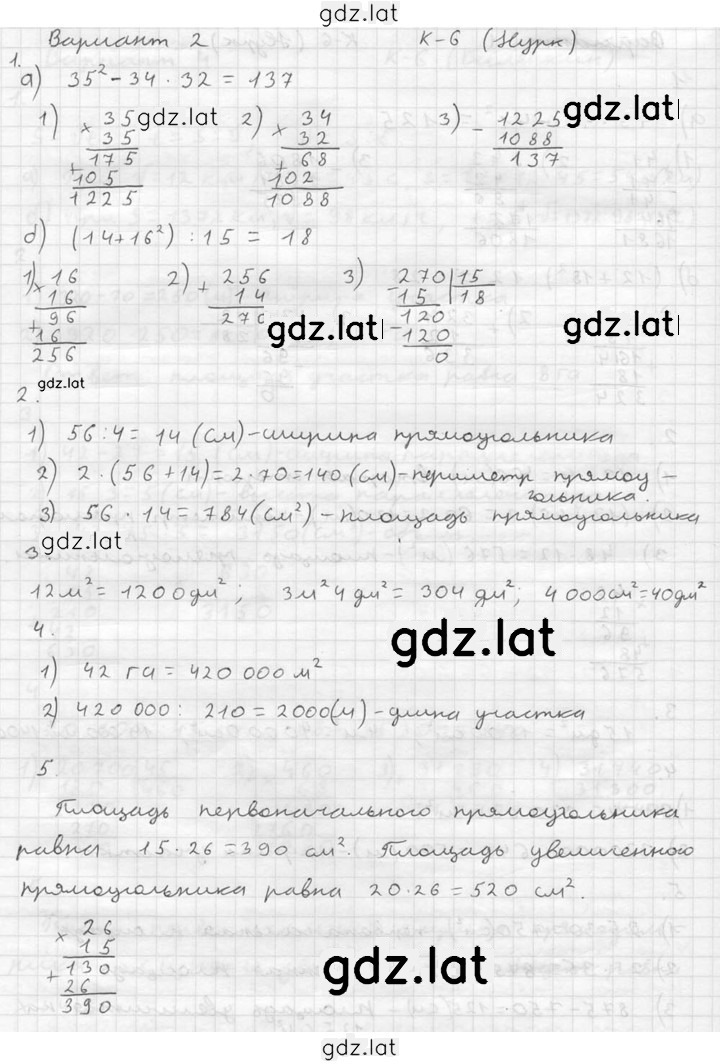 gdz.lat
Вариант 2 К-6 (Нурк)
1.
а) 35² - 34 · 32 = 137
1) × 35 gdz.lat 2) × 34 3) - 1225 gdz.lat
35 32 1088
+ 175 + 68 137
105 102
1225 1088
б) (14+16²) : 15 = 18
1) × 16 2) + 256 3) - 270 | 15
16 14 15 18
+ 96 270 - 120
16 120
256 0
gdz.lat gdz.lat
gdz.lat
2.
1) 56 : 4 = 14 (см) - ширина прямоугольника
2) 2 · (56 + 14) = 2 · 70 = 140 (см) - периметр прямоу -
гольника.
3) 56 · 14 = 784 (см²) - площадь прямоугольника
3. gdz.lat
12 м² = 1200 дм² ; 3 м² 4 дм² = 304 дм² ; 4 000 см² = 40 дм²
4. gdz.lat
1) 42 га = 420 000 м²
2) 420 000 : 210 = 2000 (м) - длина участка
5.
Площадь первоначального прямоугольника
равна 15 · 26 = 390 см². Площадь увеличенного
прямоугольника равна 20 · 26 = 520 см².
× 26
15
+ 130
26
390
gdz.lat
gdz.lat